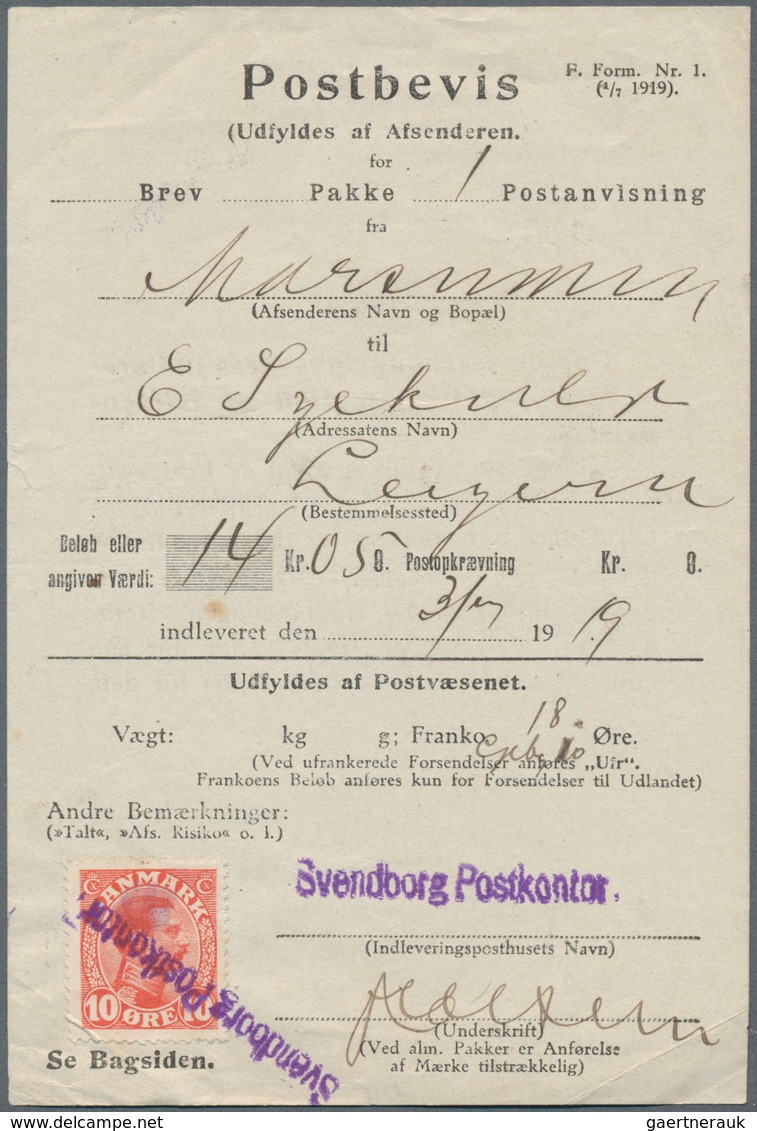 Postbevis
F. Form. Nr. 1.
(1/7 1919).
(Udfyldes af Afsenderen.
for
Brev Pakke 1 Postanvisning
fra
(Afsenderens Navn og Bopæl)
til
E
(Adressatens Navn)
(Bestemmelsessted)
Beløb eller
angiven Værdi: 14 Kr. 05 Ø. Postopkrævning Kr. Ø.
indleveret den 3/7 1919
Udfyldes af Postvæsenet.
Vægt: kg g; Franko 18 Øre.
10
(Ved ufrankerede Forsendelser anføres „Ufr".
Frankoens Beløb anføres kun for Forsendelser til Udlandet)
Andre Bemærkninger:
(»Talt«, »Afs. Risiko« o. l.)
Svendborg Postkontor.
(Indleveringsposthusets Navn)
DANMARK
10 ØRE 10
Svendborg Postkontor
(Underskrift)
(Ved alm. Pakker er Anførelse
af Mærke tilstrækkelig)
Se Bagsiden.
www.delcampe.net
gaertnerauk